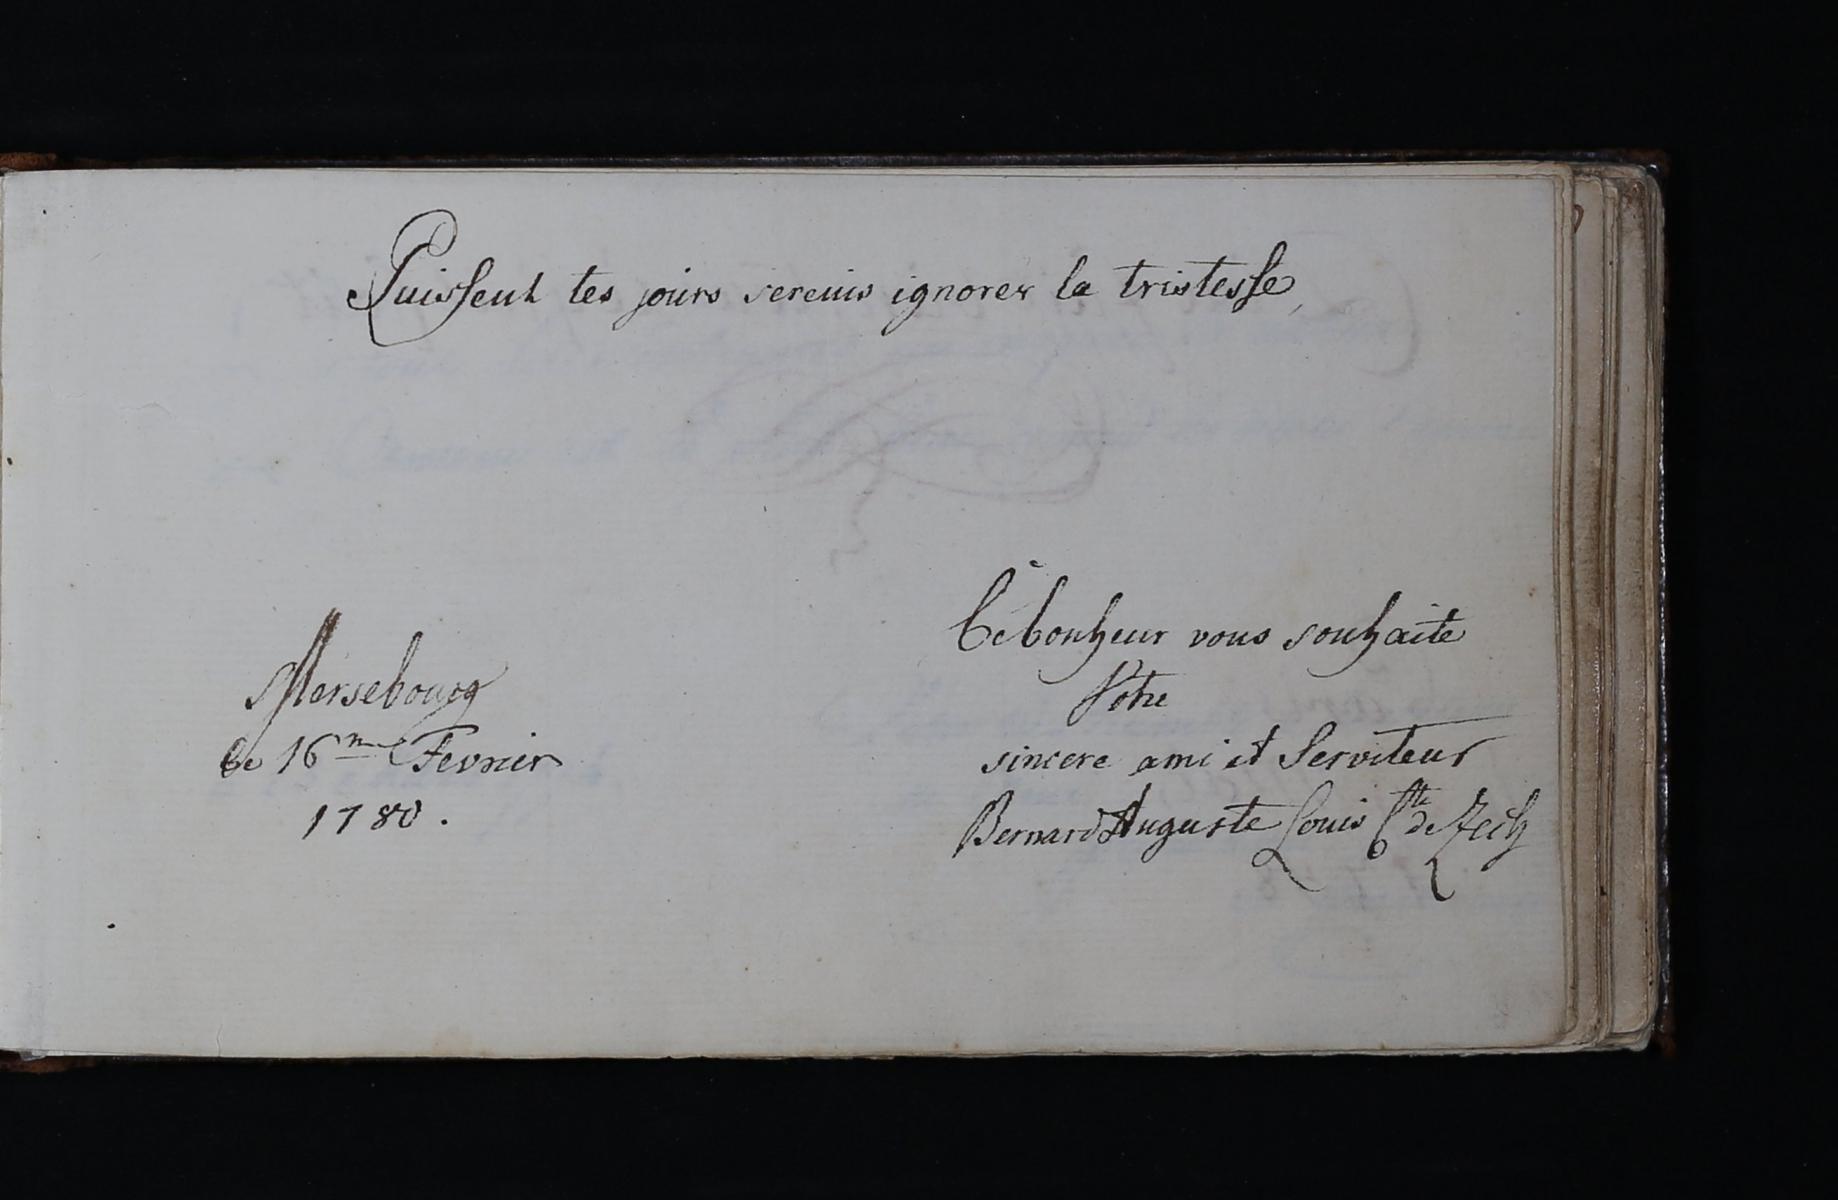 Puissent tes jours sereins ignorer la tristesse,
Mersebourg
le 16me Fevrier
1780.
Ce bonheur vous souhaite
Votre
sincere ami et Serviteur
Bernard Auguste Louis Cte de Zech